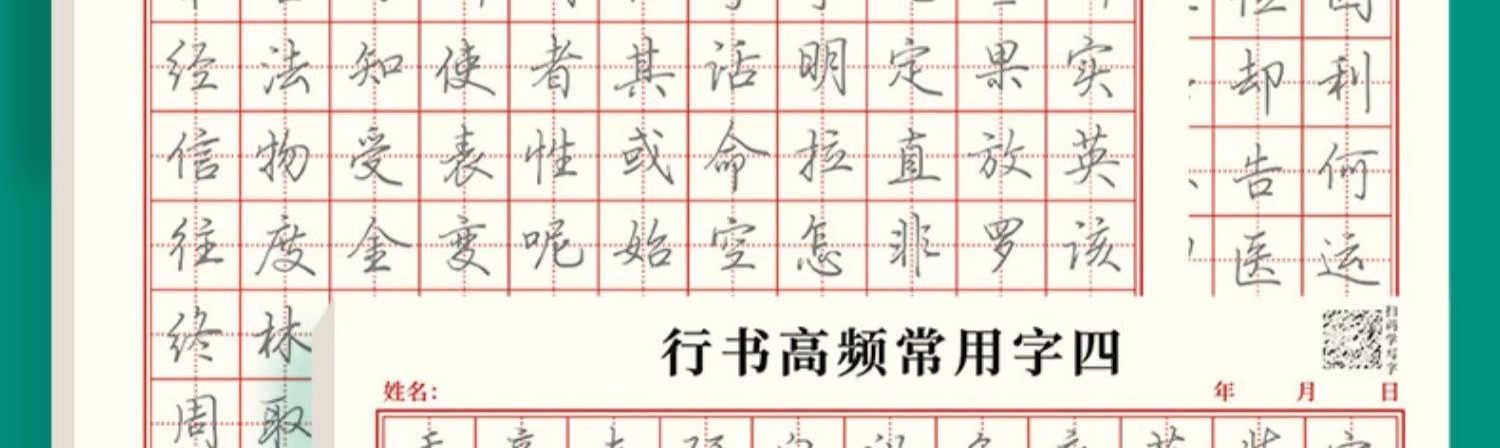 经法知使者其话明定果实
却利
信物受表性或命拉直放英
告何
往度金变呢始空怎非罗该
医运
终林
周取
行书高频常用字四
扫码学写字
姓名:
年 月 日